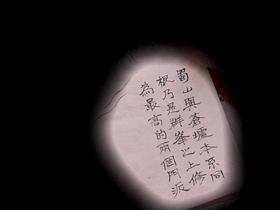 蜀山與蒼墟本系同
根乃是群峯之上修
為最高的兩個門派